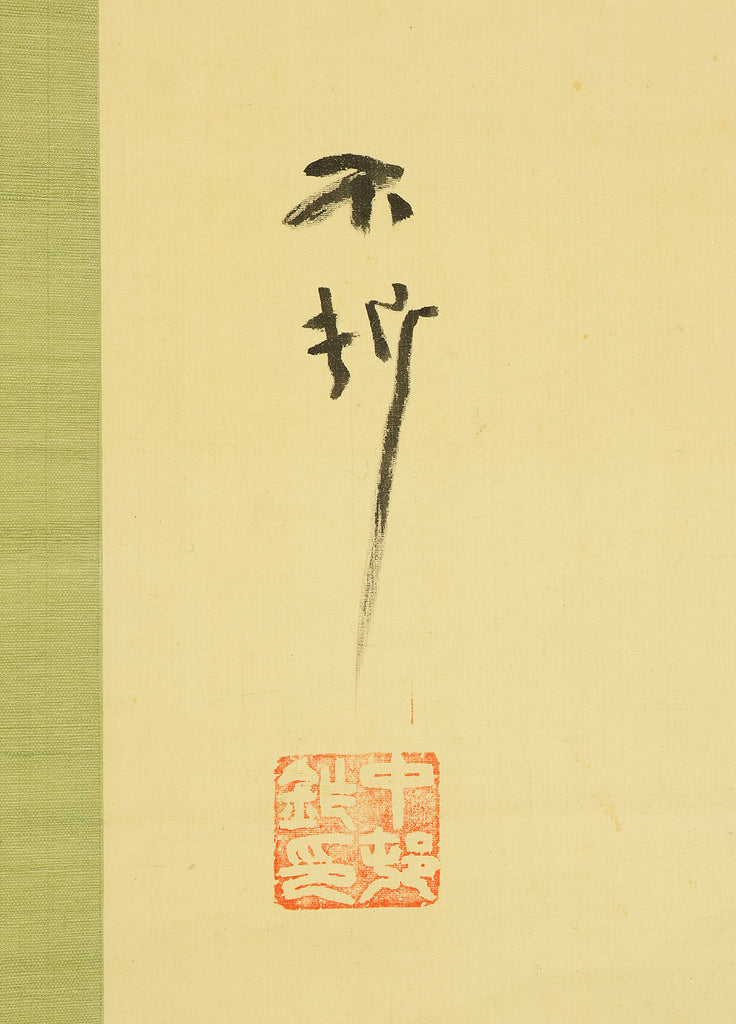 不折
中村
鈼印